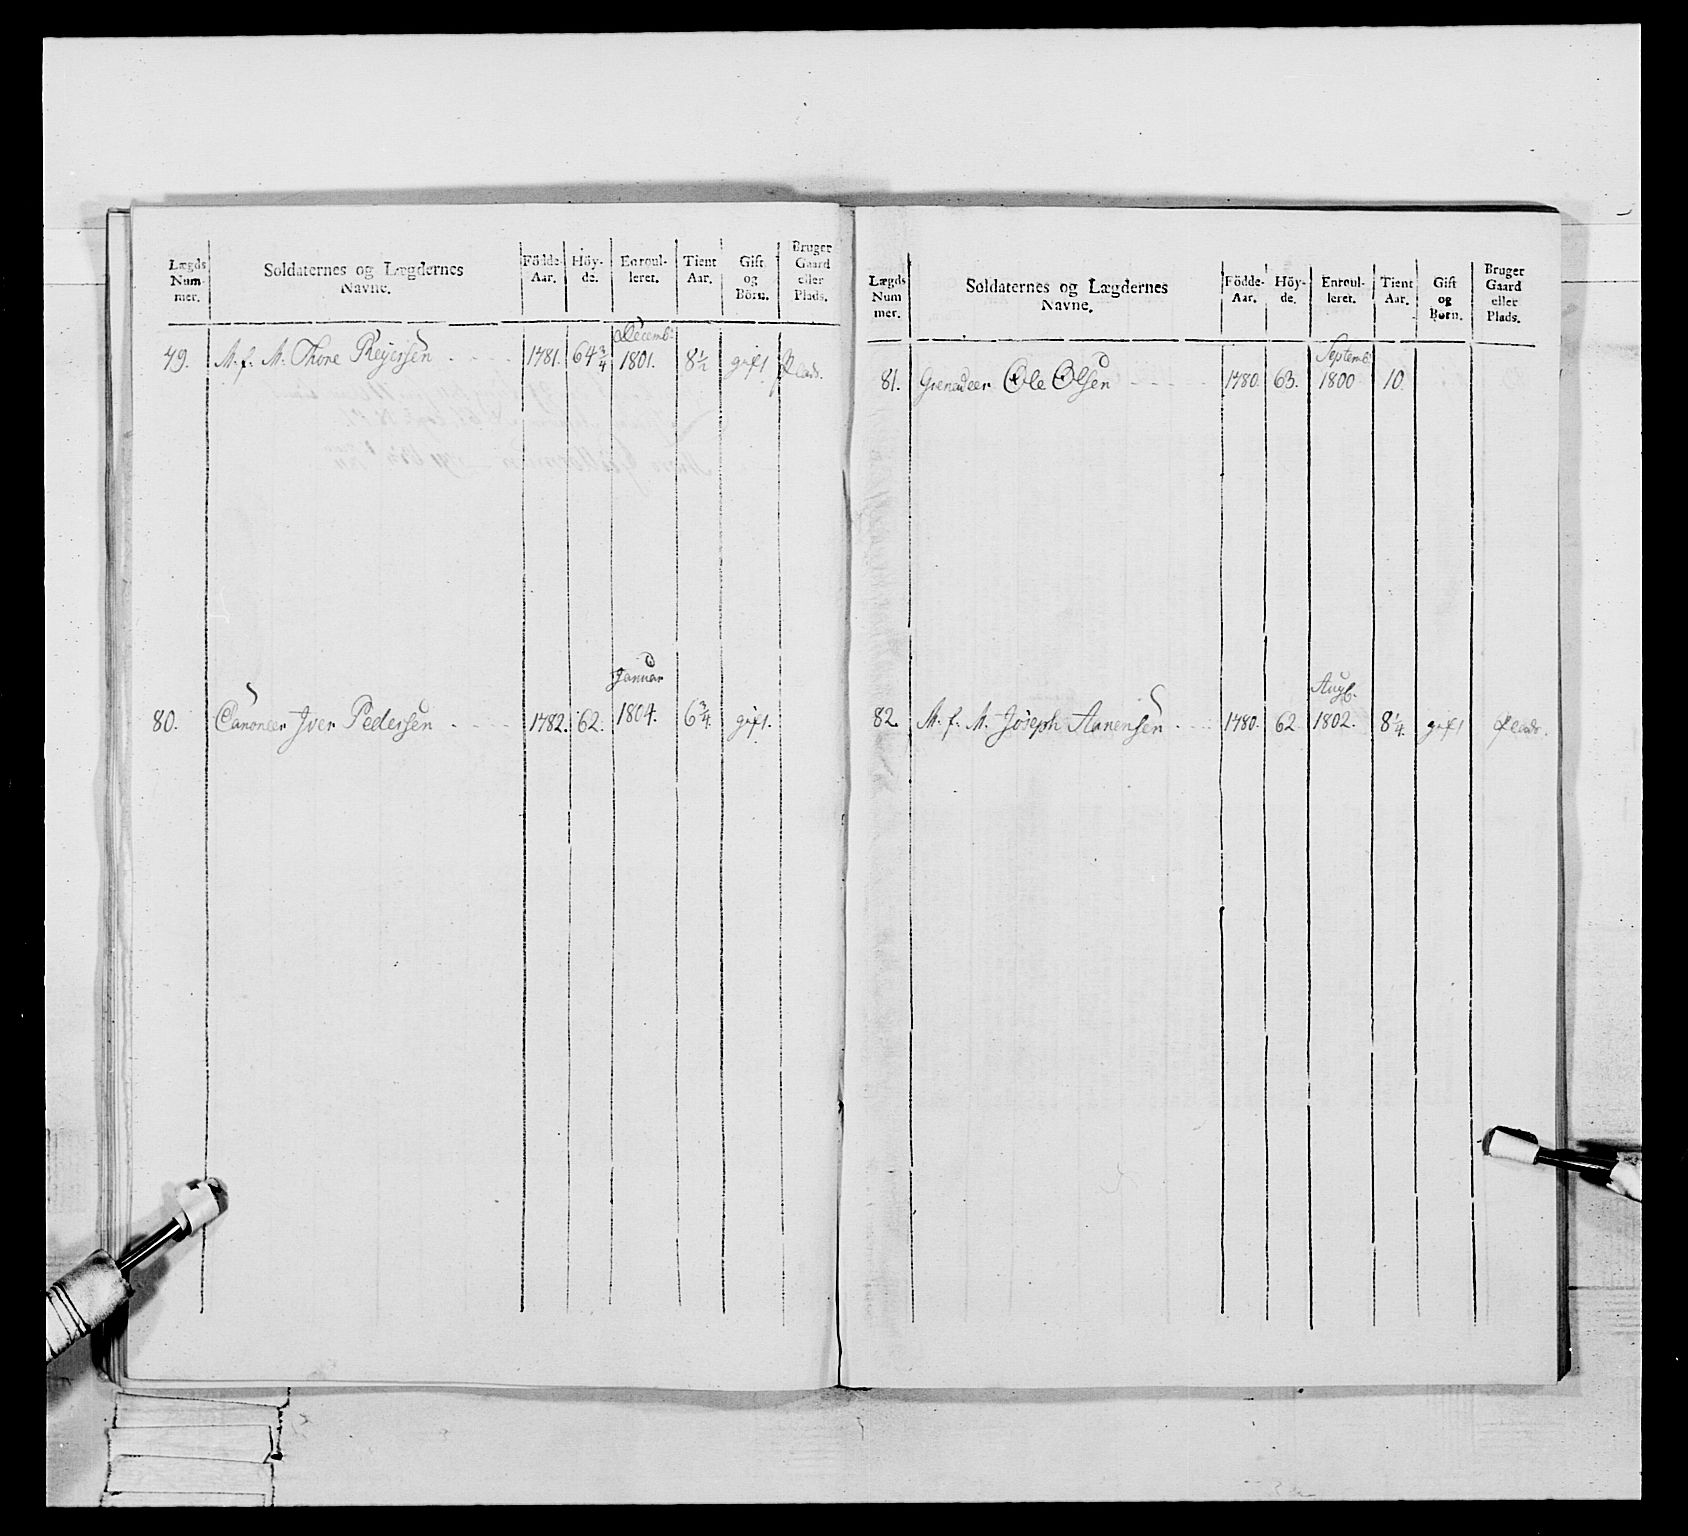 Lægds Num- mer.
Soldaternes og Lægdernes Navne.
Födde- Aar.
Höy- de.
Enroul- leret.
Tient Aar.
Gift og Börn.
Bruger Gaard eller Plads.
Decemb:
79. M. f. M. Thore Reyersen 1781. 64 3/4 1801. 8 1/2 gift Plads.
Januar
80. Canoneer Iver Pedersen 1782. 62. 1804. 6 3/4. gift.
Lægds Num mer.
Soldaternes og Lægdernes Navne.
Födde- Aar.
Höy- de.
Enroul- leret.
Tient Aar.
Gift og Børn.
Bruger Gaard eller Plads.
Septemb:
81. Grenadeer Ole Olsen 1780. 63. 1800 10.
Aug
82. M. f. M. Joseph Aanensen 1780. 62. 1802. 8 1/4. gift Plads.